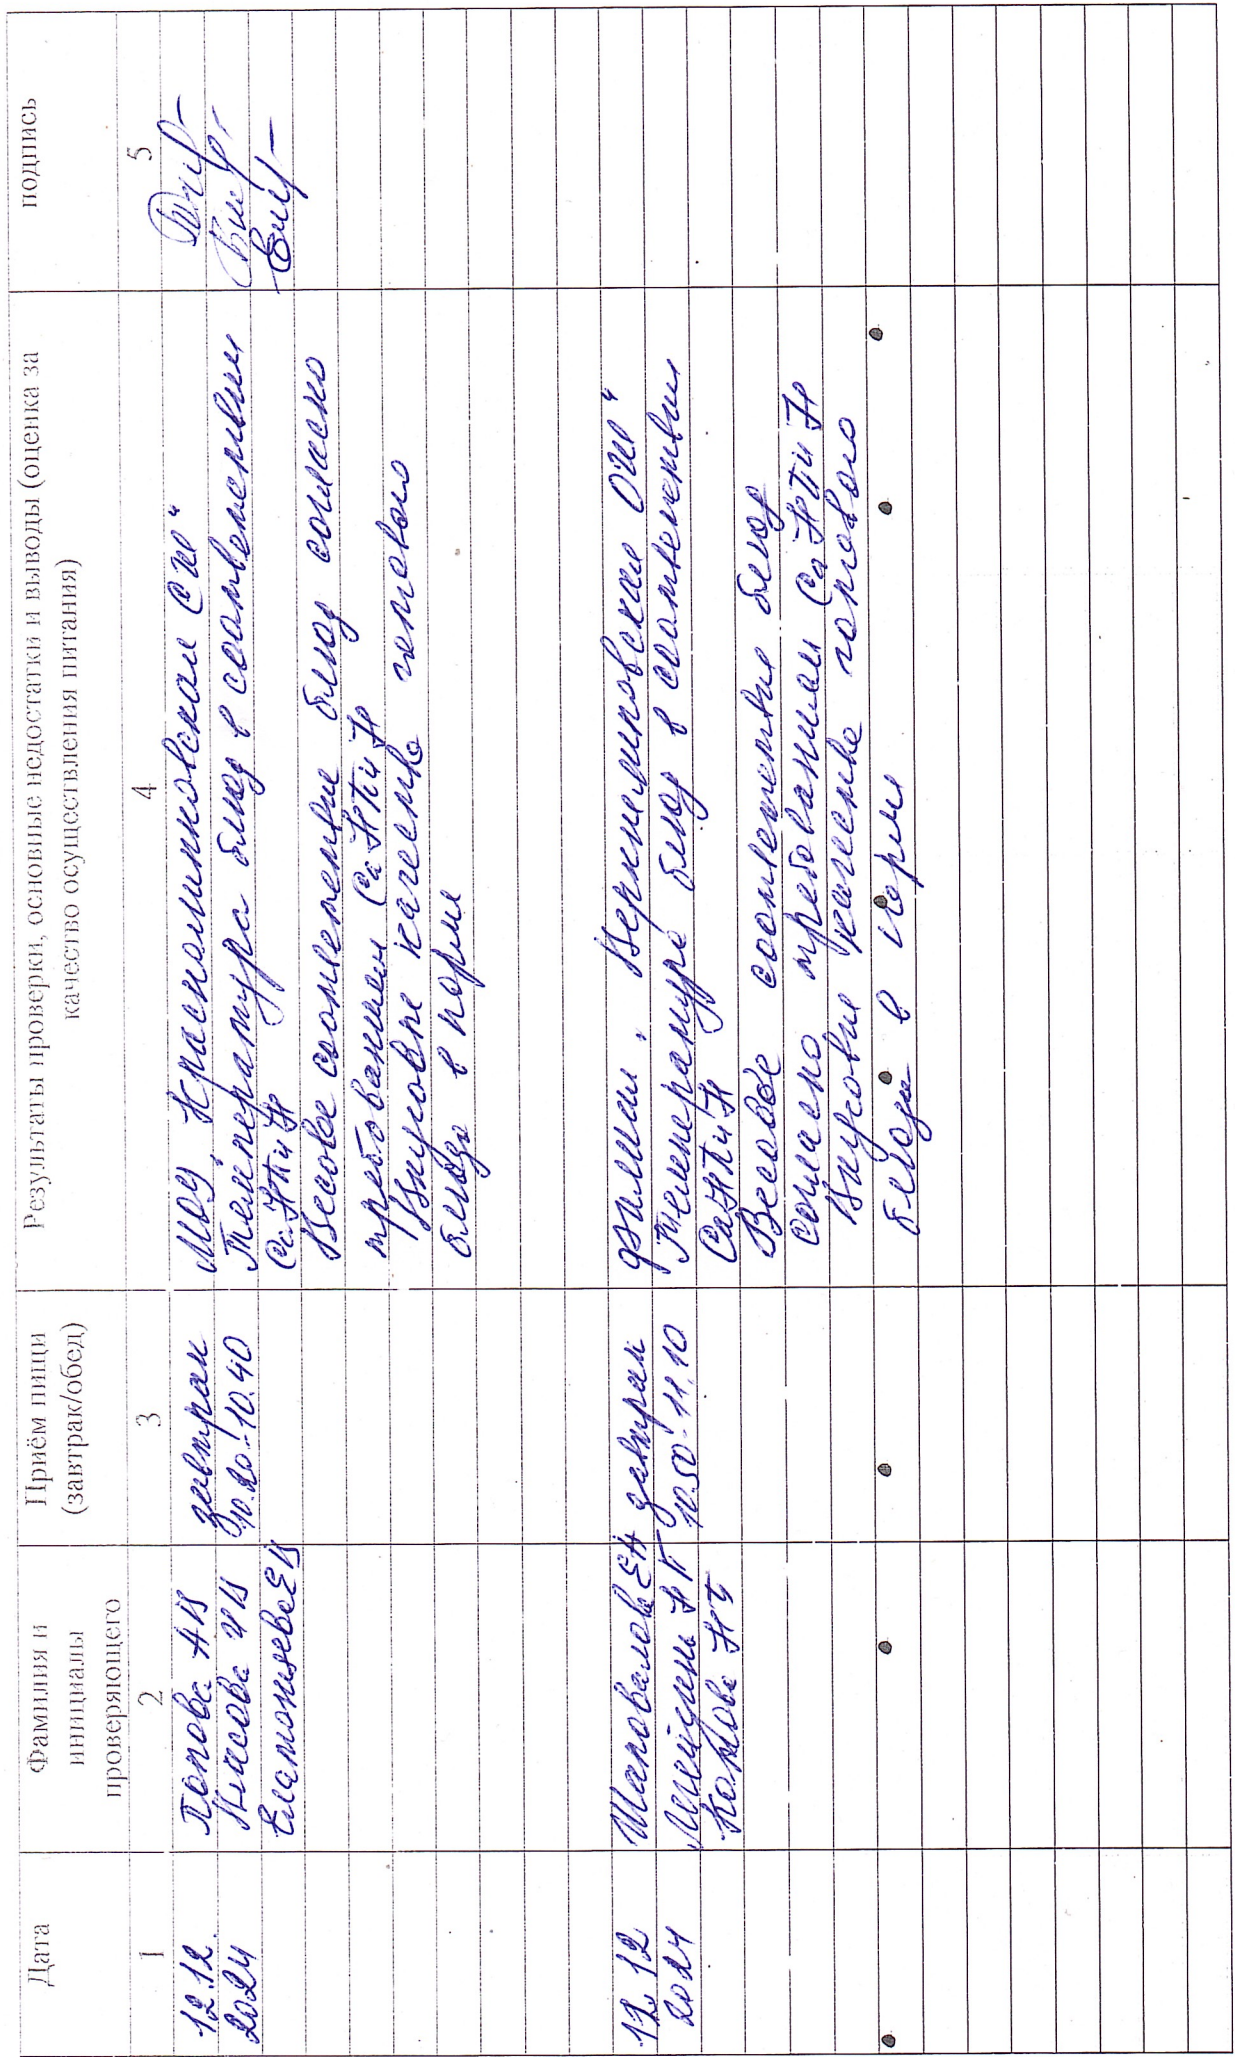 Дата
Фамилия и
инициалы
проверяющего
Приём пищи
(завтрак/обед)
Результаты проверки, основные недостатки и выводы (оценка за
качество осуществления питания)
подпись
1
2
3
4
5
12.12.
2024
Попова АВ
Власова ИВ
ЕВ
завтрак
10.20-10.40
МОУ „Краснолипковская СШ“
Температура блюд в соответствии
СаНПиН
Весовое соответствие блюд согласно
требованиям СаНПиН
Вкусовые качества готового
блюда в норме
12.12
2024
Шаповалова ЕА
НГ
НБ
завтрак
10.50-11.10
филиал „ Верхнелипковская ОШ“
Температура блюд в соответствии
СаНПиН
Весовое соответствие блюд
согласно требованиям СаНПиН
Вкусовые качества готового
блюда в норме